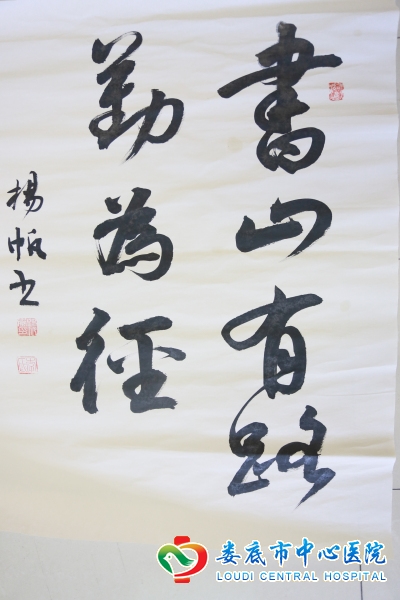 書山有路
勤為徑
楊帆书
娄底市中心医院
LOUDI CENTRAL HOSPITAL